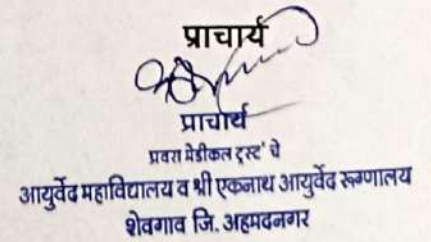 प्राचार्य
प्राचार्य
प्रवरा मेडीकल ट्रस्ट' चे
आयुर्वेद महाविद्यालय व श्री एकनाथ आयुर्वेद रूग्णालय
शेवगाव जि. अहमदनगर